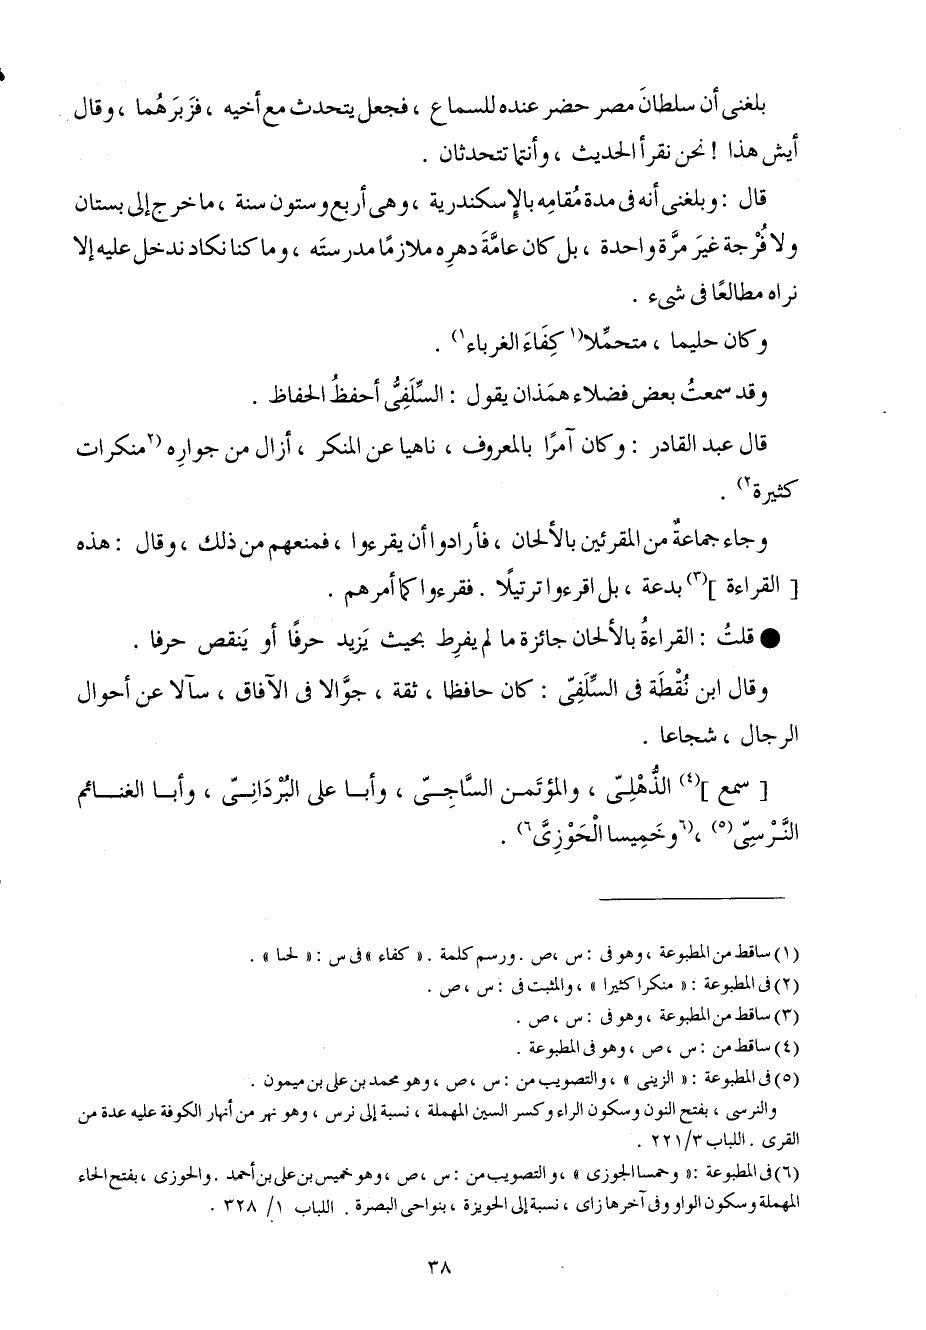 بلغنى أن سلطانَ مصر حضر عنده للسماع ، فجعل يتحدث مع أخيه ، فزَبَرَهُما ، وقال
أيش هذا ! نحن نقرأ الحديث ، وأنتما تتحدثان .
قال : وبلغنى أنه فى مدة مُقامِه بالإسكندرية ، وهى أربع وستون سنة ، ما خرج إلى بستان
ولا فُرْجة غيرَ مرَّة واحدة ، بل كان عامَّةَ دهرِه ملازمًا مدرستَه ، وما كنا نكاد ندخل عليه إلا
نراه مطالعًا فى شىء .
وكان حليما ، متحمِّلا(١ كِفَاءَ الغرباء١) .
وقد سمعتُ بعض فضلاء همَذان يقول : السِّلَفِىُّ أحفظُ الحفاظ .
قال عبد القادر : وكان آمرًا بالمعروف ، ناهيا عن المنكر ، أزال من جوارِه (٢منكرات
كثيرة٢) .
وجاء جماعةٌ من المقرئين بالألحان ، فأرادوا أن يقرءوا ، فمنعهم من ذلك ، وقال : هذه
[ القراءة ](٣) بدعة ، بل اقرءوا ترتيلًا . فقرءوا كما أمرهم .
● قلتُ : القراءةُ بالألحان جائزة ما لم يفرِط بحيث يَزيد حرفًا أو يَنقص حرفا .
وقال ابن نُقْطَة فى السِّلَفِىّ : كان حافظا ، ثقة ، جوَّالا فى الآفاق ، سآلا عن أحوال
الرجال ، شجاعا .
[ سمع ](٤) الذُّهْلِىّ ، والمؤتَمن السَّاجِىّ ، وأبا على البُرْدَانِىّ ، وأبا الغنائم
النَّرْسِىّ(٥) ، (٦وخَمِيسا الْحَوْزِىَّ٦) .
(١) ساقط من المطبوعة ، وهو فى : س ، ص . ورسم كلمة . « كفاء » فى س : « لحسا » .
(٢) فى المطبوعة : « منكرا كثيرا » ، والمثبت فى : س ، ص .
(٣) ساقط من المطبوعة ، وهو فى : س ، ص .
(٤) ساقط من : س ، ص ، وهو فى المطبوعة .
(٥) فى المطبوعة : « الزينى » ، والتصويب من : س ، ص ، وهو محمد بن على بن ميمون .
والنرسى ، بفتح النون وسكون الراء وكسر السين المهملة ، نسبة إلى نرس ، وهو نهر من أنهار الكوفة عليه عدة من
القرى . اللباب ٣/ ٢٢١ .
(٦) فى المطبوعة : « وحمسا الجوزى » ، والتصويب من : س ، ص ، وهو خميس بن على بن أحمد . والحوزى ، بفتح الحاء
المهملة وسكون الواو وفى آخرها زاى ، نسبة إلى الحويزة ، بنواحى البصرة . اللباب ١/ ٣٢٨ .
٣٨